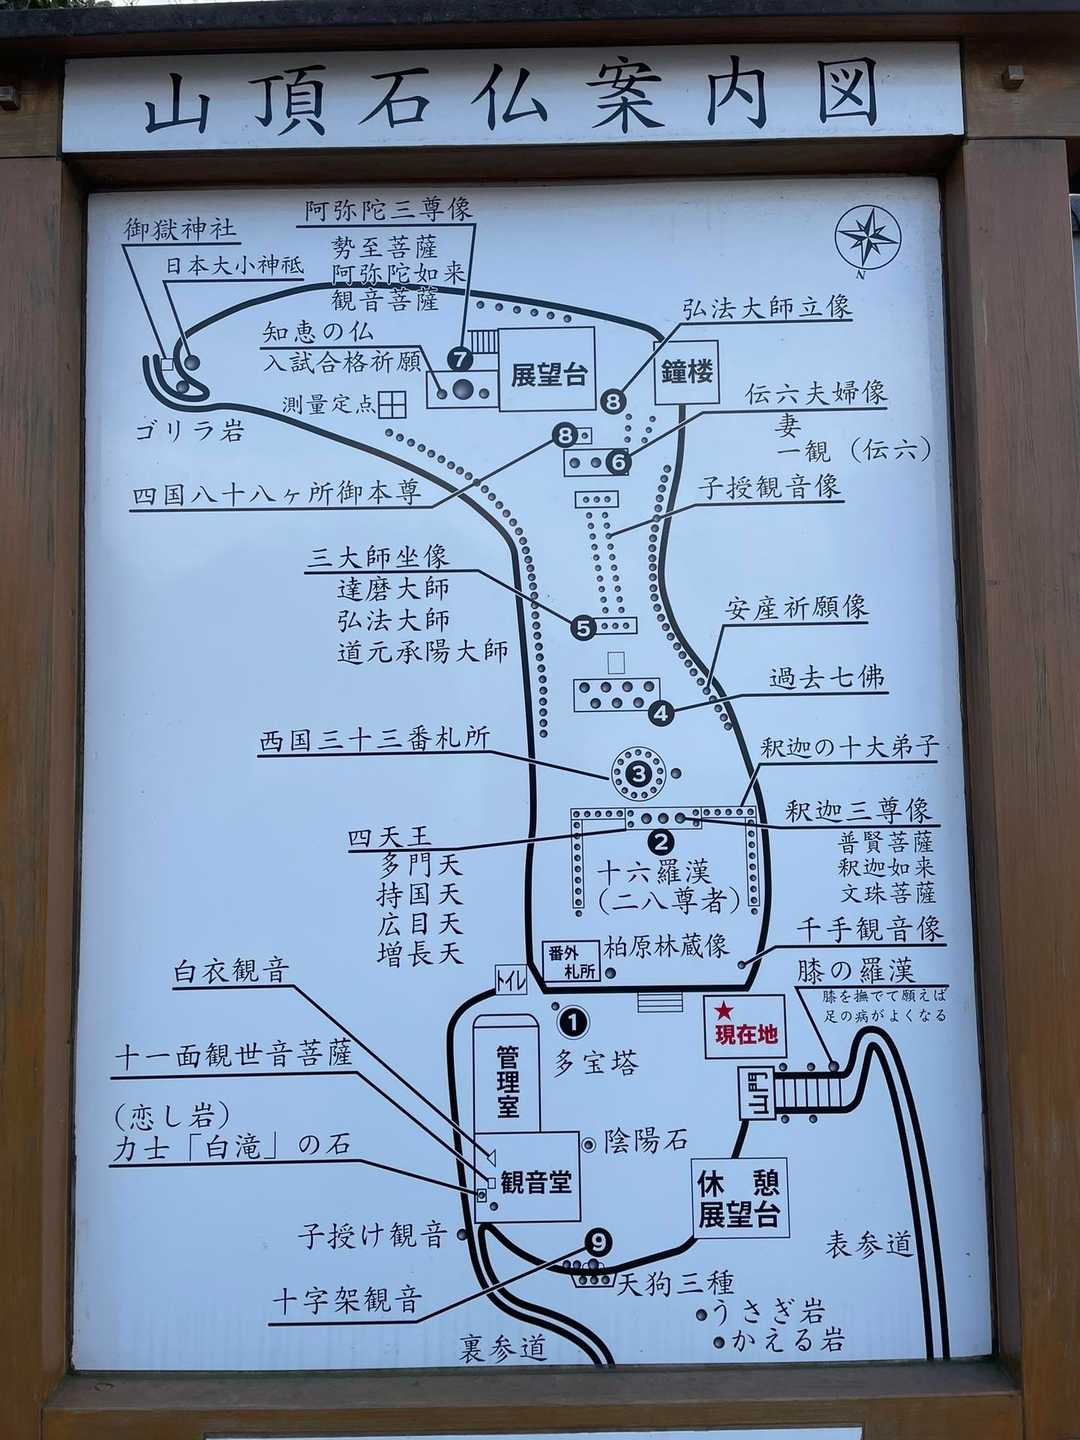 山頂石仏案内図
阿弥陀三尊像
勢至菩薩
阿弥陀如来
観音菩薩
御獄神社
日本大小神祇
N
知恵の仏
入試合格祈願
7
展望台
弘法大師立像
鐘楼
8
測量定点
ゴリラ岩
伝六夫婦像
妻
一観（伝六）
8
6
四国八十八ヶ所御本尊
子授観音像
三大師坐像
達磨大師
弘法大師
道元承陽大師
5
安産祈願像
過去七佛
4
西国三十三番札所
3
釈迦の十大弟子
釈迦三尊像
普賢菩薩
釈迦如来
文珠菩薩
四天王
多門天
持国天
広目天
増長天
2
十六羅漢
（二八尊者）
千手観音像
番外
札所
柏原林蔵像
膝の羅漢
膝を撫でて願えば
足の病がよくなる
白衣観音
トイレ
1
多宝塔
★
現在地
管理室
山門
十一面観世音菩薩
（恋し岩）
力士「白滝」の石
陰陽石
観音堂
休憩
展望台
子授け観音
9
表参道
十字架観音
天狗三種
うさぎ岩
かえる岩
裏参道